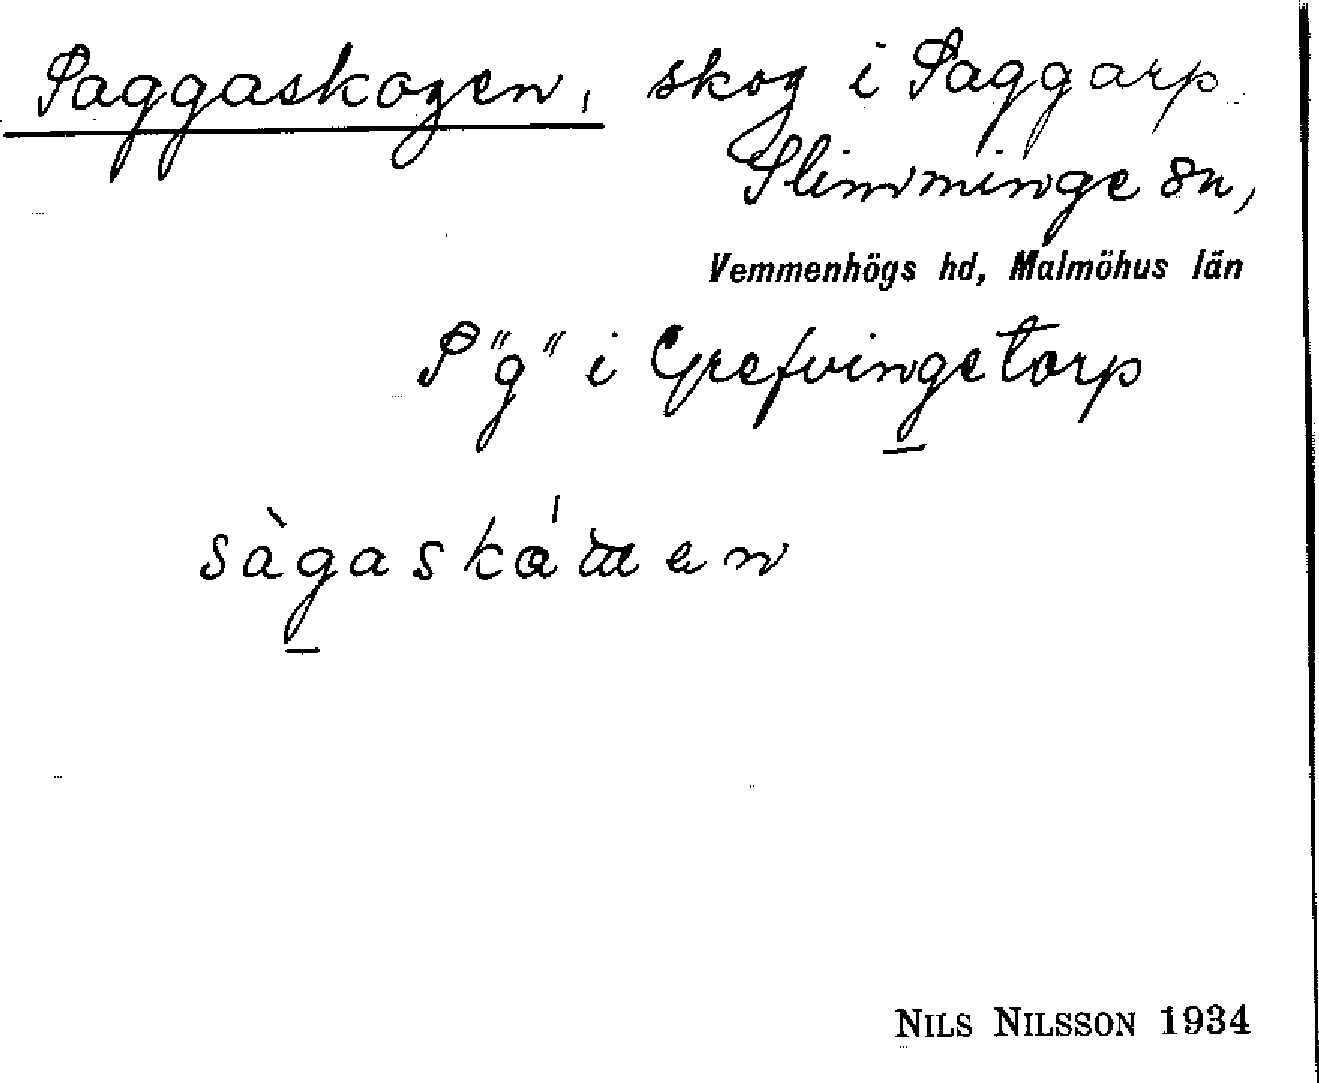 Saggaskogen, skog i Saggarp
Slimminge sn,
Vemmenhögs hd, Malmöhus län
S "g" i Grefvingetorp
NILS NILSSON 1934